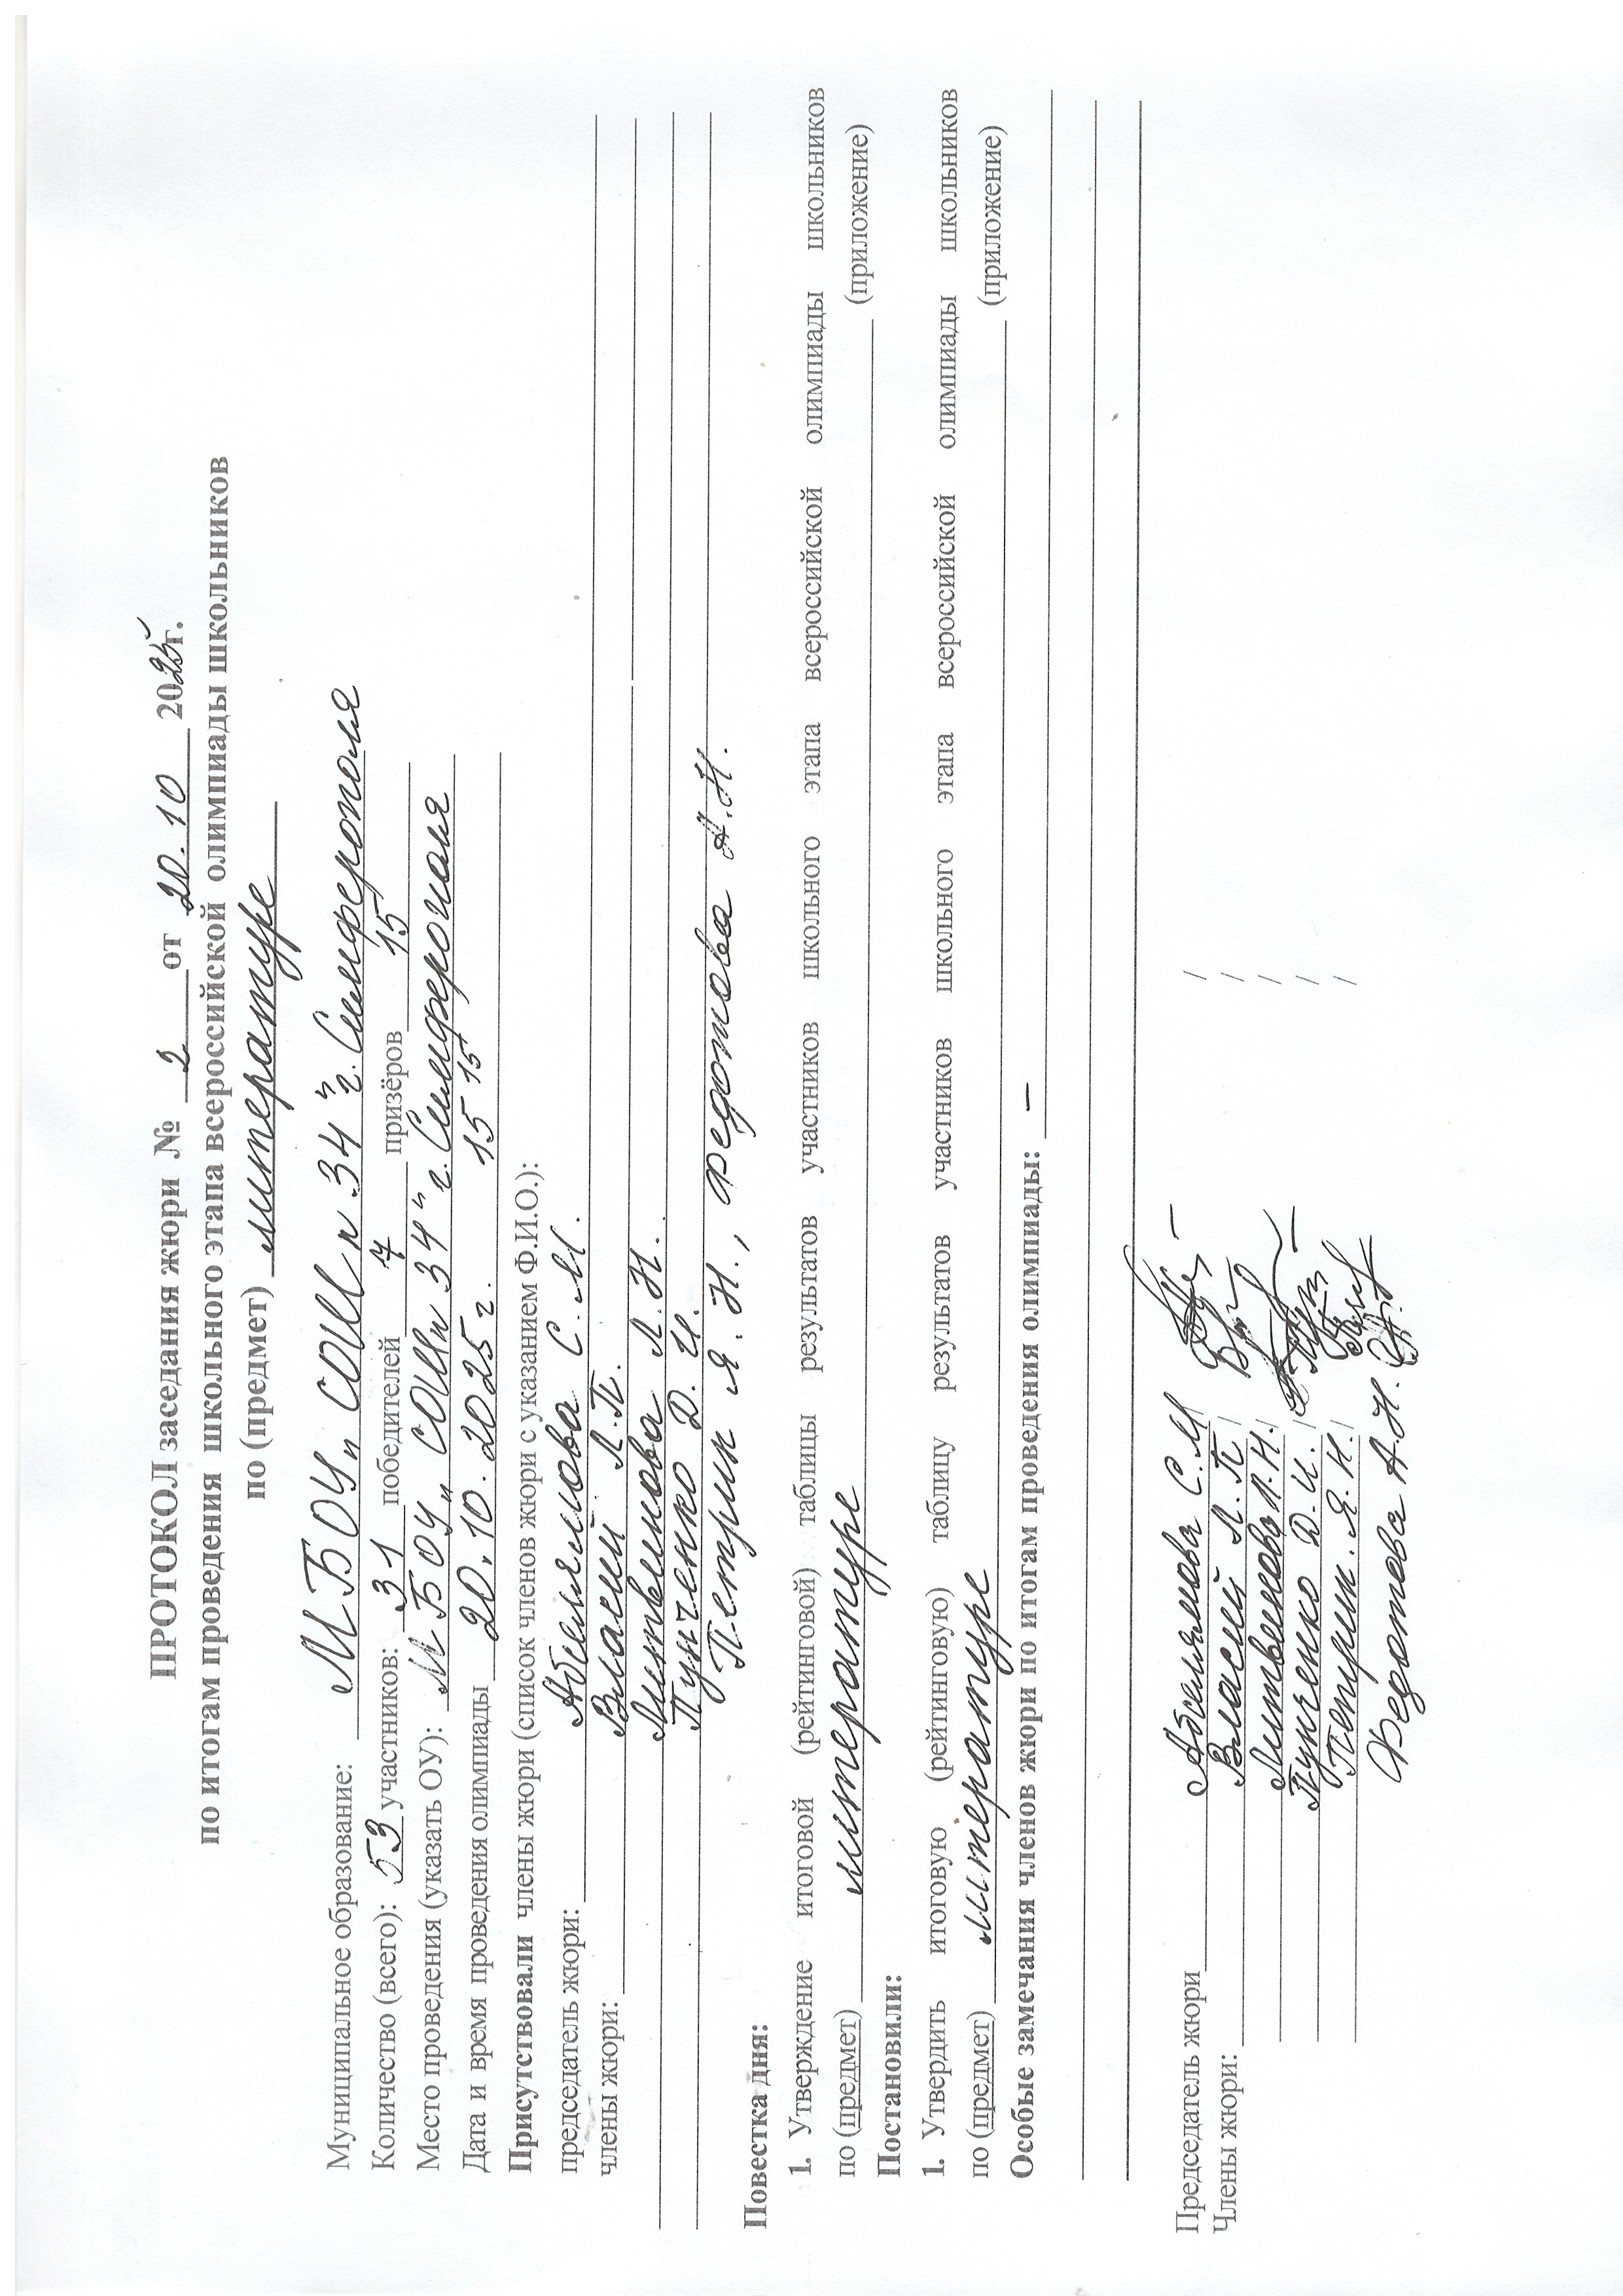 ПРОТОКОЛ заседания жюри № 2 от 20.10 2025г.
по итогам проведения школьного этапа всероссийской олимпиады школьников
по (предмет) литературе
Муниципальное образование: МБОУ „СОШ n 34" г. Симферополя
Количество (всего): 53 участников: 31 победителей 7 призёров 15
Место проведения (указать ОУ): МБОУ „СОШ n 34" г. Симферополя
Дата и время проведения олимпиады 20.10.2025 г. 15 15
Присутствовали члены жюри (список членов жюри с указанием Ф.И.О.):
председатель жюри: Абселямова С.М.
члены жюри: Власий Л.П.
Литвинова Л.Н.
Пунченко Д.И.
Петрик Я.Н., Федотова А.Н.
Повестка дня:
1. Утверждение итоговой (рейтинговой) таблицы результатов участников школьного этапа всероссийской олимпиады школьников
по (предмет) литературе (приложение)
Постановили:
1. Утвердить итоговую (рейтинговую) таблицу результатов участников школьного этапа всероссийской олимпиады школьников
по (предмет) литературе (приложение)
Особые замечания членов жюри по итогам проведения олимпиады: –
Председатель жюри Абселямова С.М / /
Члены жюри: Власий Л.П / /
Литвинова Л.Н. / /
Пунченко Д.И. / /
Петрик Я.Н. / /
Федотова А.Н.